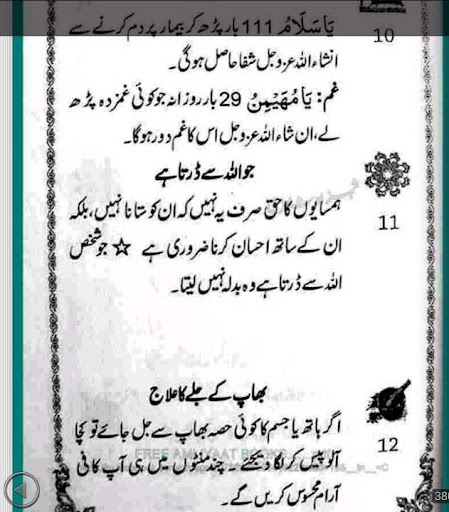 یَا سَلَامُ 111 بار پڑھ کر بیمار پر دم کرنے سے
10
انشاء اللہ عزوجل شفا حاصل ہو گی۔
غم: یَا مُھَیْمِنُ 29 بار روزانہ جو کوئی غمزدہ پڑھ
لے، ان شاء اللہ عزوجل اس کا غم دور ہو گا۔
جو اللہ سے ڈرتا ہے
ہمسایوں کا حق صرف یہ نہیں کہ ان کو ستانا نہیں، بلکہ
11
ان کے ساتھ احسان کرنا ضروری ہے ☆ جو شخص
اللہ سے ڈرتا ہے وہ بدلہ نہیں لیتا۔
بھاپ کے جلے کا علاج
اگر ہاتھ یا جسم کا کوئی حصہ بھاپ سے جل جائے تو کچا
12
آلو پیس کر لگا دیجئے۔ چند منٹوں میں ہی آپ کافی
FREE AMLIYAAT BOOKS
آرام محسوس کریں گے۔
380